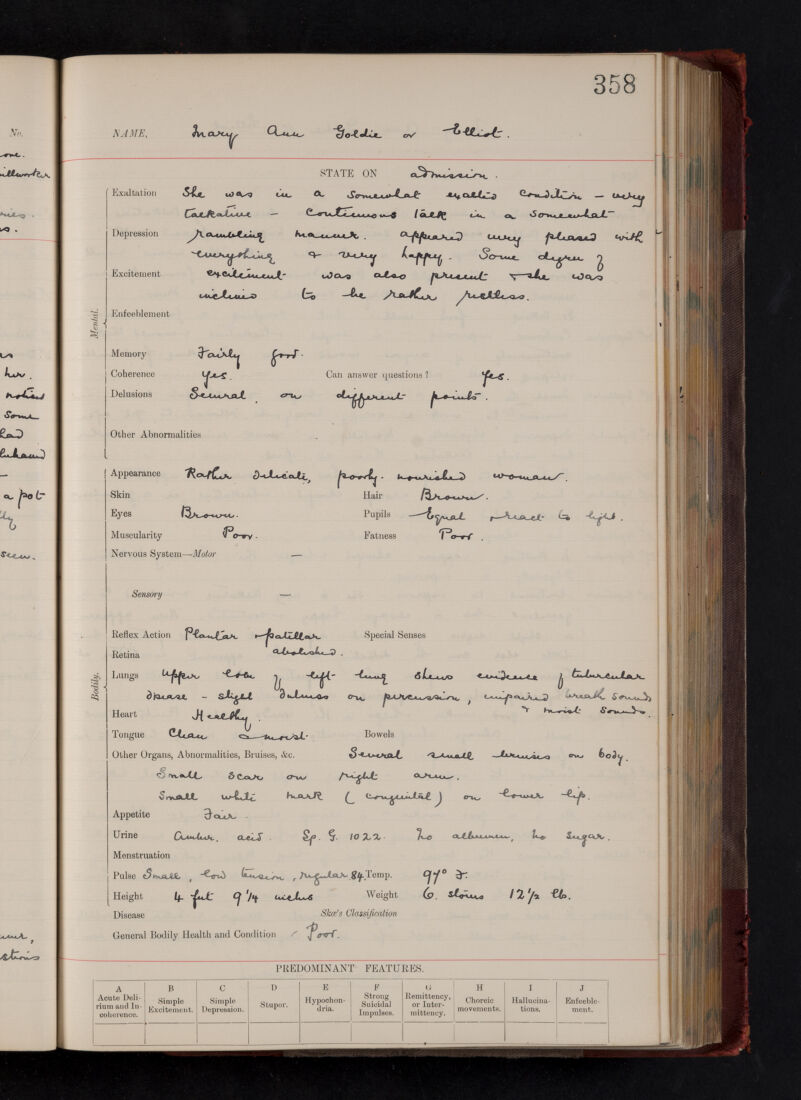 358
No.
NAME, Mary Ann Goldie or Elliot.
STATE ON admission.
Mental.
Exaltation She was in a somewhat exalted condition – very
talkative – continuous talk in a somewhat
Depression rambling manner. appeared very pleased with
everything & very happy. Some degree of
Excitement excitement was also present & she was
inclined to be rather restless.
Enfeeblement
Memory Fairly good.
Coherence Yes. Can answer questions? Yes.
Delusions Several, on different points.
Other Abnormalities
Bodily.
Appearance Rather delicate, poorly-nourished woman.
Skin Hair Brown.
Eyes Brown. Pupils Equal & react to light.
Muscularity Poor. Fatness Poor.
Nervous System—Motor —
Sensory —
Reflex Action Plantar & patellar Special Senses
abolished.
Retina
Lungs Upper lobe of left lung shews evidence of tubercular
disease – slight dulness on percussion, impaired breath sounds
& moist sounds.
Heart Healthy.
Tongue Clean & moist. Bowels
Other Organs, Abnormalities, Bruises, &c. Several small bruises on body.
Small scar on right arm.
Small white mark (congenital) on lower lip.
Appetite Fair.
Urine Amber, acid. Sp. G. 1022. No albumen, no sugar.
Menstruation
Pulse Small, low tension, regular 84. Temp. 97° F.
Height 4 feet 9 1/4 inches Weight 6 stones 12 1/2 lb.
Disease Skae's Classification
General Bodily Health and Condition Poor.
PREDOMINANT FEATURES.
A B C D E F G H I J
Acute Delirium and Incoherence. Simple Excitement. Simple Depression. Stupor. Hypochondria. Strong Suicidal Impulses. Remittency, or Intermittency. Choreic movements. Hallucinations. Enfeeblement.